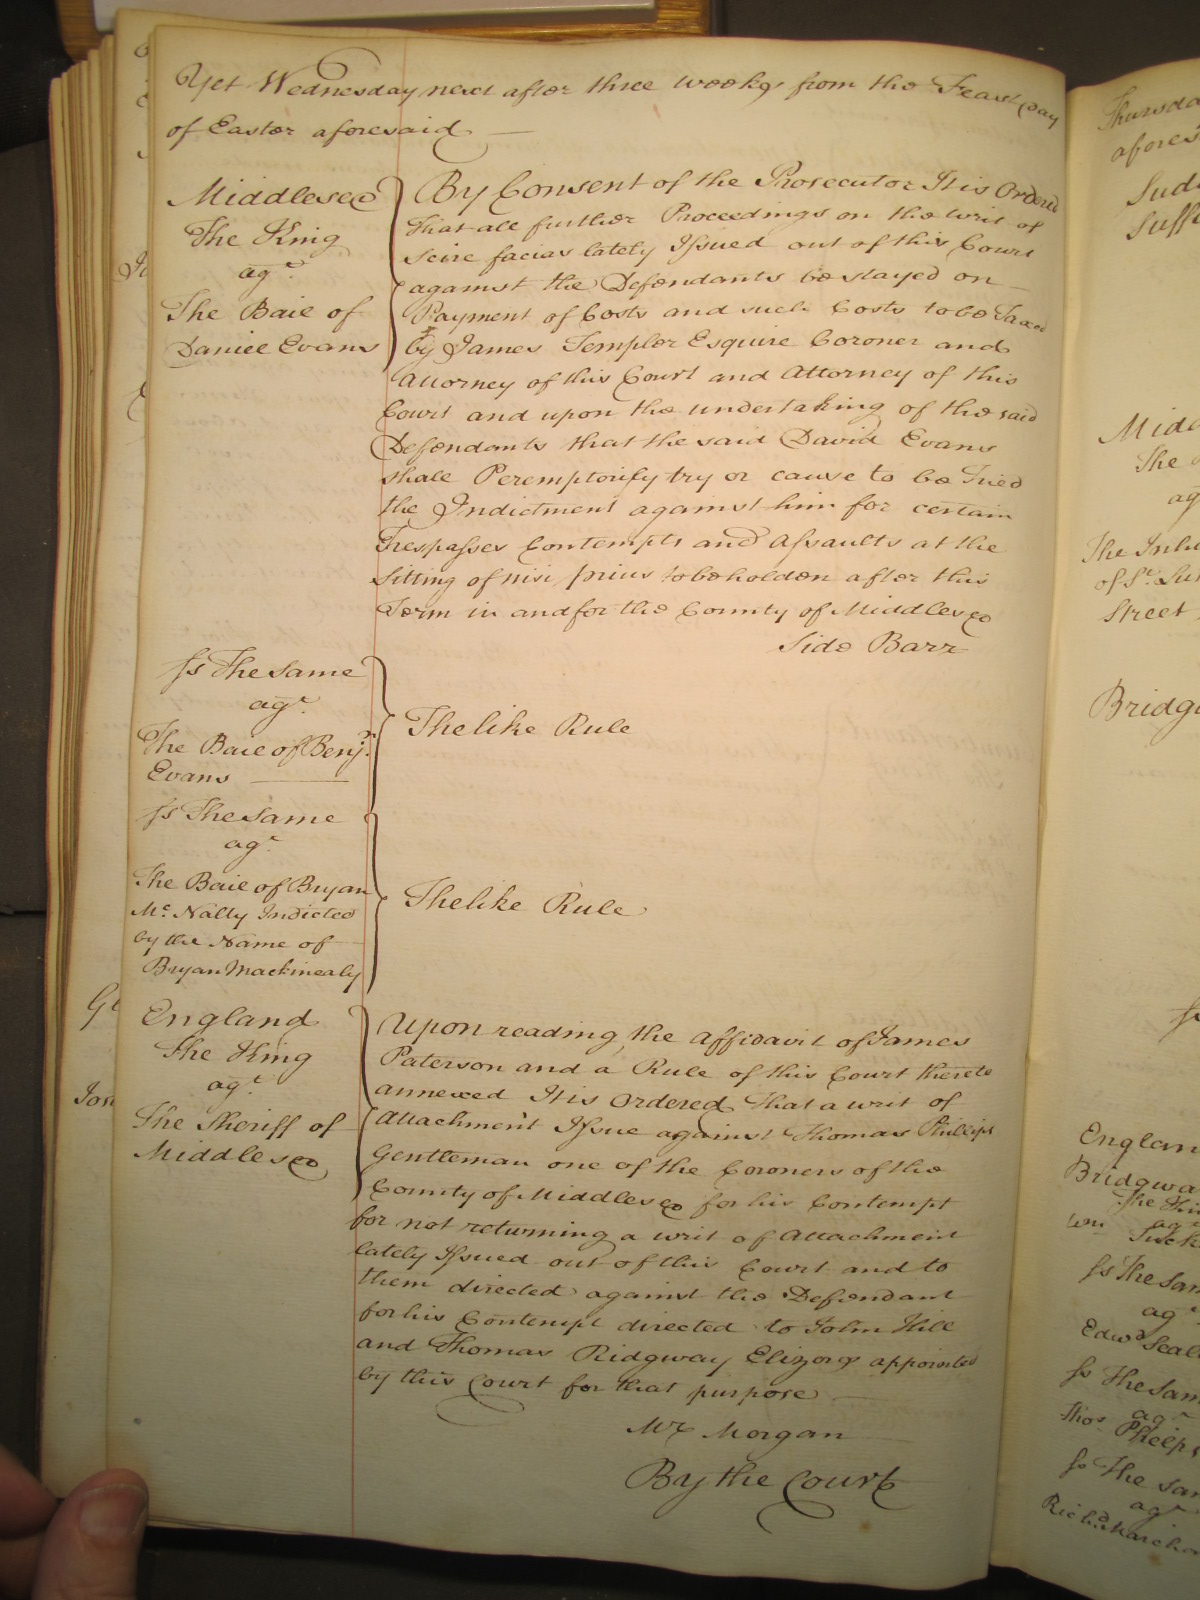 Yet Wednesday next after three weeks from the Feast day
of Easter aforesaid
Middlesex
The King
agt.
The Bail of
Daniel Evans
By Consent of the Prosecutor It is Ordered
That all further Proceedings on the writ of
scire facias lately Issued out of this Court
against the Defendants be stayed on
Payment of Costs and such Costs to be Taxed
by James Templer Esquire Coroner and
Attorney of this Court and Attorney of this
Court and upon the undertaking of the said
Defendants that the said David Evans
shall Peremptorily try or cause to be Tried
the Indictment against him for certain
Trespasses Contempts and Assaults at the
Sitting of nisi prius to be holden after this
Term in and for the County of Middlesex
Side Barr
Ss The Same
agt.
The Bail of Benj.
Evans
The like Rule
Ss The Same
agt.
The Bail of Bryan
Mc. Nally Indicted
by the Name of
Bryan Mackinealy
The like Rule
England
The King
agt.
The Sheriff of
Middlesex
Upon reading the Affidavit of James
Paterson and a Rule of this Court thereto
annexed It is Ordered That a writ of
Attachment Issue against Thomas Phillips
Gentleman one of the Coroners of the
County of Middlesex for his Contempt
for not returning a writ of Attachment
lately Issued out of this Court and to
them directed against the Defendant
for his Contempt directed to John Hill
and Thomas Ridgway Elizors appointed
by this Court for that purpose
Mr Morgan
By the Court
Thursda
afores
Sudb
Suff
Midd
The
ag
The Inh
of St. Lu
Street
Bridgw
Ss
England
Bridgwa
The Kin
agt
Wm Tuck
Ss The Sam
agt
Edwd Seal
Ss The Sam
agt
Thos Phelps
Ss The Sam
agt